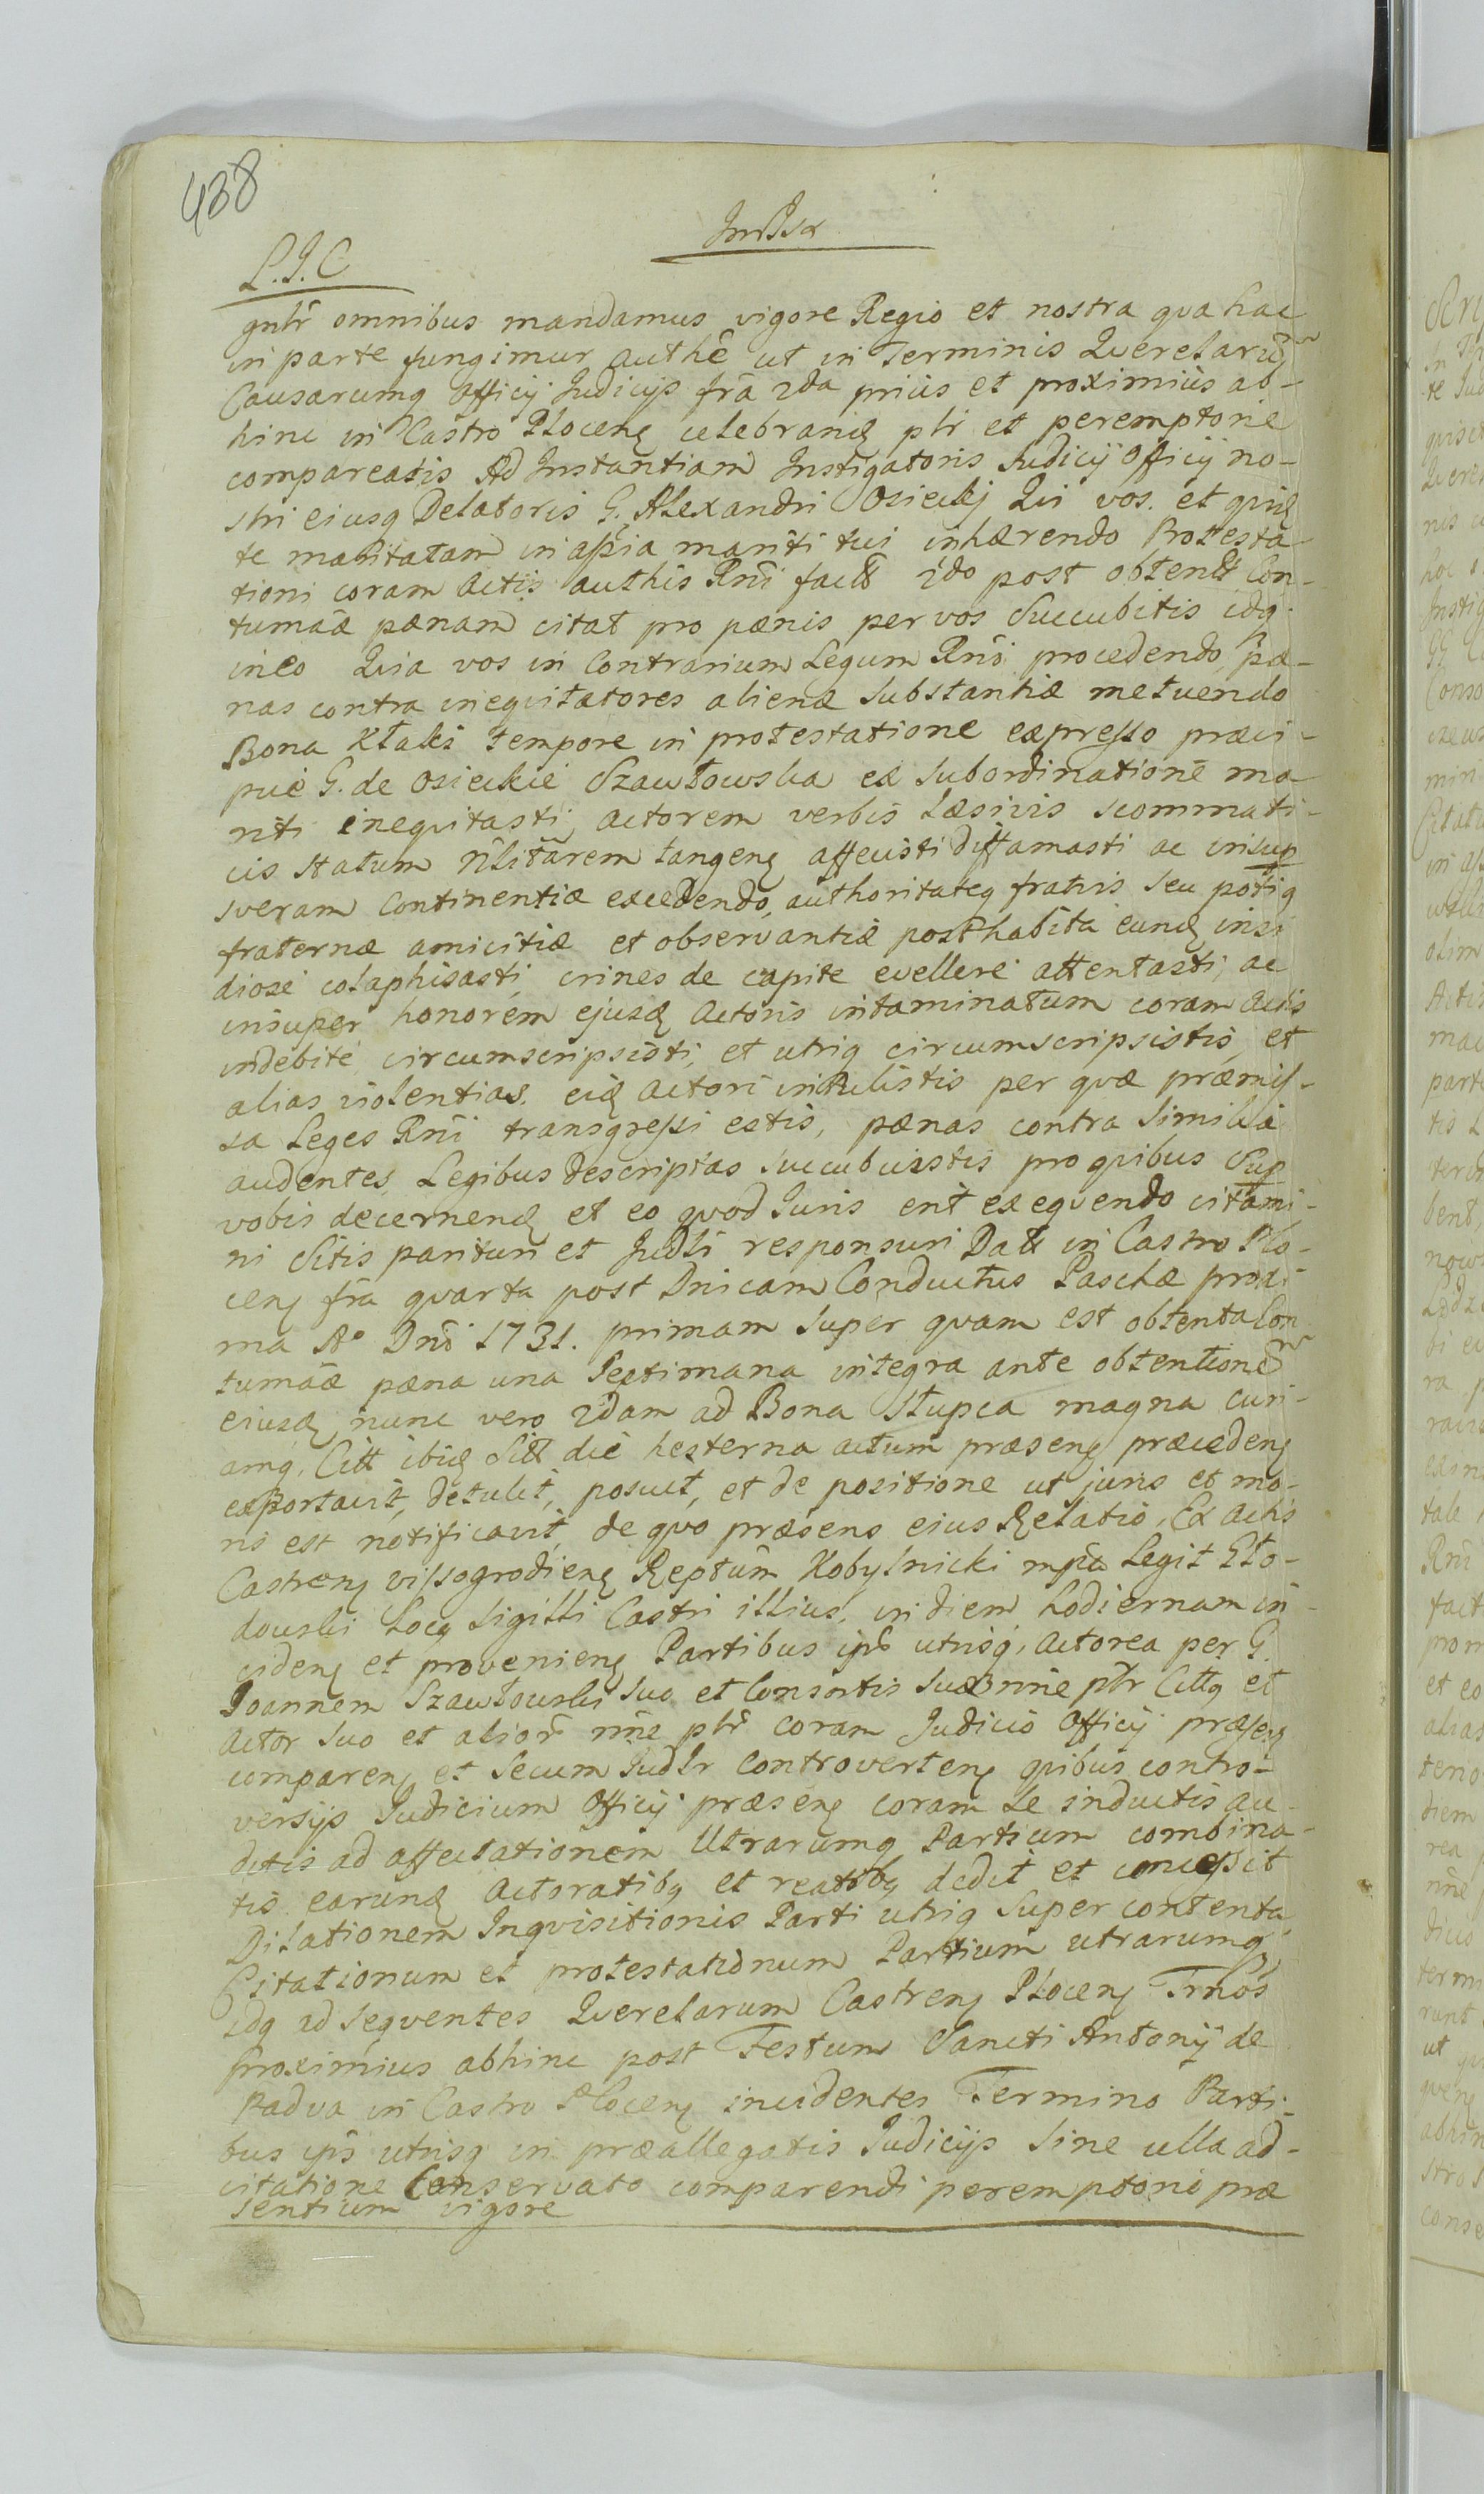 438
L.I.C
gnlr omnibus mandamus vigore Regio et nostra qua hac
in parte fungimur authe ut in Terminis Querelaru
Causarumq Officÿ Judicÿs fra 2da prius et proximius ab-
hinc in Castro Plocen celebrand plr et peremptorie
compareatis Ad Instantiam Instigatoris Judicÿ Officÿ no-
stri eiusq Delatoris G. Alexandri Osieckj Qui vos. et quid
te maritatam in assia mariti tui inhærendo Protesta-
tioni coram Actis authis Rni factt 2do post obtent Con-
tumaæ pænam citat pro pænis per vos Succubitis idq.
in eo Quia vos in Contrarium Legum Rni procedendo, pæ-
nas contra inequitatores alienæ Substantiæ metuendo
Bona Ktalki tempore in protestatione expresso præci-
pue G. de Osieckie Szawłowska ex Subordinatione ma
riti inequitasti, actorem verbis Læsivis scommati-
cis statum Nlitarem tangen affecisti diffamasti ac insup
sveram Continentiæ excedendo, authoritateq fratris seu potiq
fraternæ amicitiæ et observantiæ posthabita eund insi
diose colaphisasti, crines de capite evellere attentasti, ac
insuper honorem ejusd Actoris intaminatum coram Actis
indebite circumscripsisti, et utriq circumscripsistis, et
alias violentias. eid Actori intulistis per quæ præmis-
sa Leges Rni transgressi estis, pænas contra Similia
audentes, Legibus descriptas succubuistis pro quibus Sup
vobis decernend et eo quod Juris erit exequendo citami-
ni Sitis parituri et Judlr responsuri Datt in Castro Plo-
cen fra quarta post Dnicam Conductus Paschæ proxi-
ma Ao Dni 1731. primam super quam est obtenta Con
tumaæ pæna una Septimana integra ante obtentione
eiusd, nunc vero 2dam ad Bona Słupca magna curi-
amq, Citt ibid Sitt die hesterna actum præsen præceden
exportavit, detulit, posuit, et de positione ut juris et mo-
ris est notificavit, de quo præsens eius Relatio, Ex Actis
Castren vissogrodien Reptum Kobylnicki mpa Legit Gło-
dowski Locq Sigilli Castri illius, in diem hodiernam in-
ciden et provenien Partibus ips utrisq, Actorea per G.
Joannem Szawłowski suo et Consortis Suæ nne plr Cittq et
Actor suo et alior nne plr coram Judicio Officÿ præsen
comparen et Secum Judlr Controverten quibus contro-
versÿs Judicium Officÿ præsen coram Se inductis au-
ditis ad affectationem Utrarumq Partium combina-
tis earund Actoratibq et reatibq dedit et concessit
Dilationem Inquisitionis Parti utriq super contenta
Citationum et protestationum Partium utrarumq,
idq ad sequentes Querelarum Castren Plocen Trnos
proximius abhinc post Festum Sancti Antonÿ de
Padua in Castro Plocen incidentes Termino Parti-
bus ips utrisq in præallegatis Judicÿs Sine ulla ad-
citatione Conservato comparendi peremptorio præ
sentium vigore